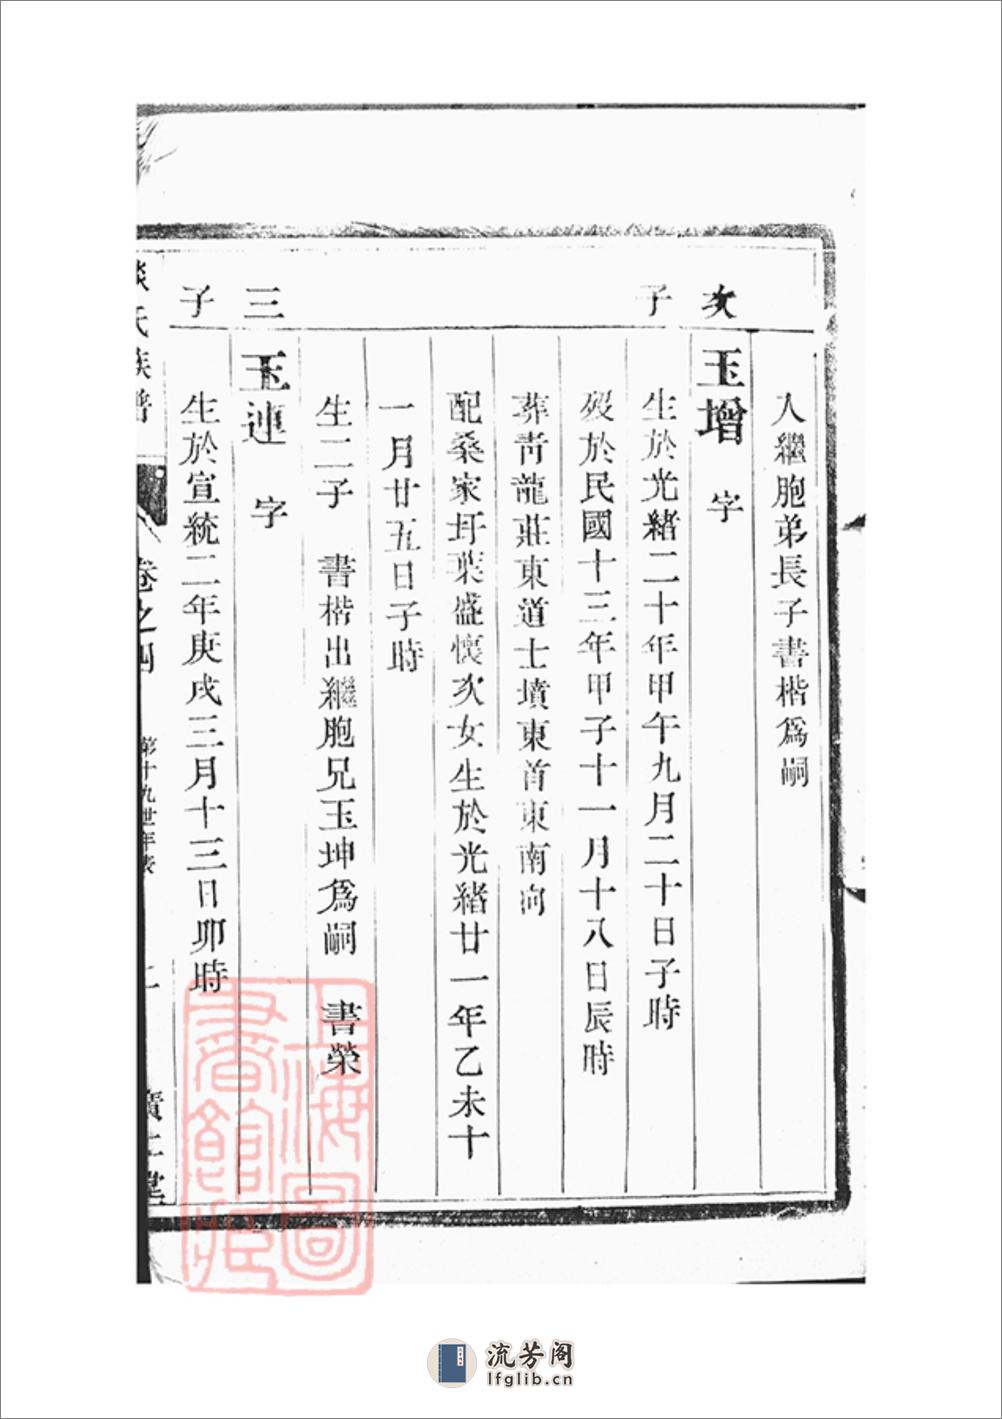 人繼胞弟長子書楷爲嗣
次子
玉增　字
生於光緒二十年甲午九月二十日子時
歿於民國十三年甲子十一月十八日辰時
葬青龍莊東道士墳東首東南向
配桑家圩葉盛懷次女生於光緒廿一年乙未十
一月廿五日子時
生二子　書楷出繼胞兄玉坤爲嗣　書榮
三子
玉連　字
生於宣統二年庚戌三月十三日卯時
氏族譜
卷之四
第十九世年表
廣仁堂
上海圖
書館藏
流芳阁
lfglib.cn